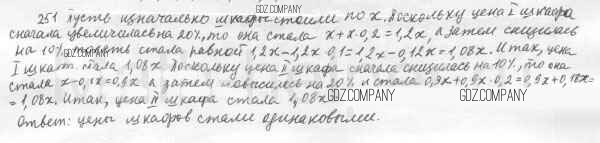 251 Пусть изначально шкафы стоили по x. Поскольку цена I шкафа
GDZ.COMPANY
сначала увеличилась на 20%, то она стала x+x·0,2=1,2x, а затем снизилась
на 10% стала равной 1,2x-1,2x·0,1=1,2x-0,12x=1,08x. Итак, цена
I шкафа стала 1,08x. Поскольку цена II шкафа сначала снизилась на 10%, то она
стала x-0,1x=0,9x а затем повысилась на 20% и стала 0,9x+0,9x·0,2=0,9x+0,18x=
GDZ.COMPANY GDZ.COMPANY
=1,08x. Итак, цена II шкафа стала 1,08x.
Ответ: цены шкафов стали одинаковыми.